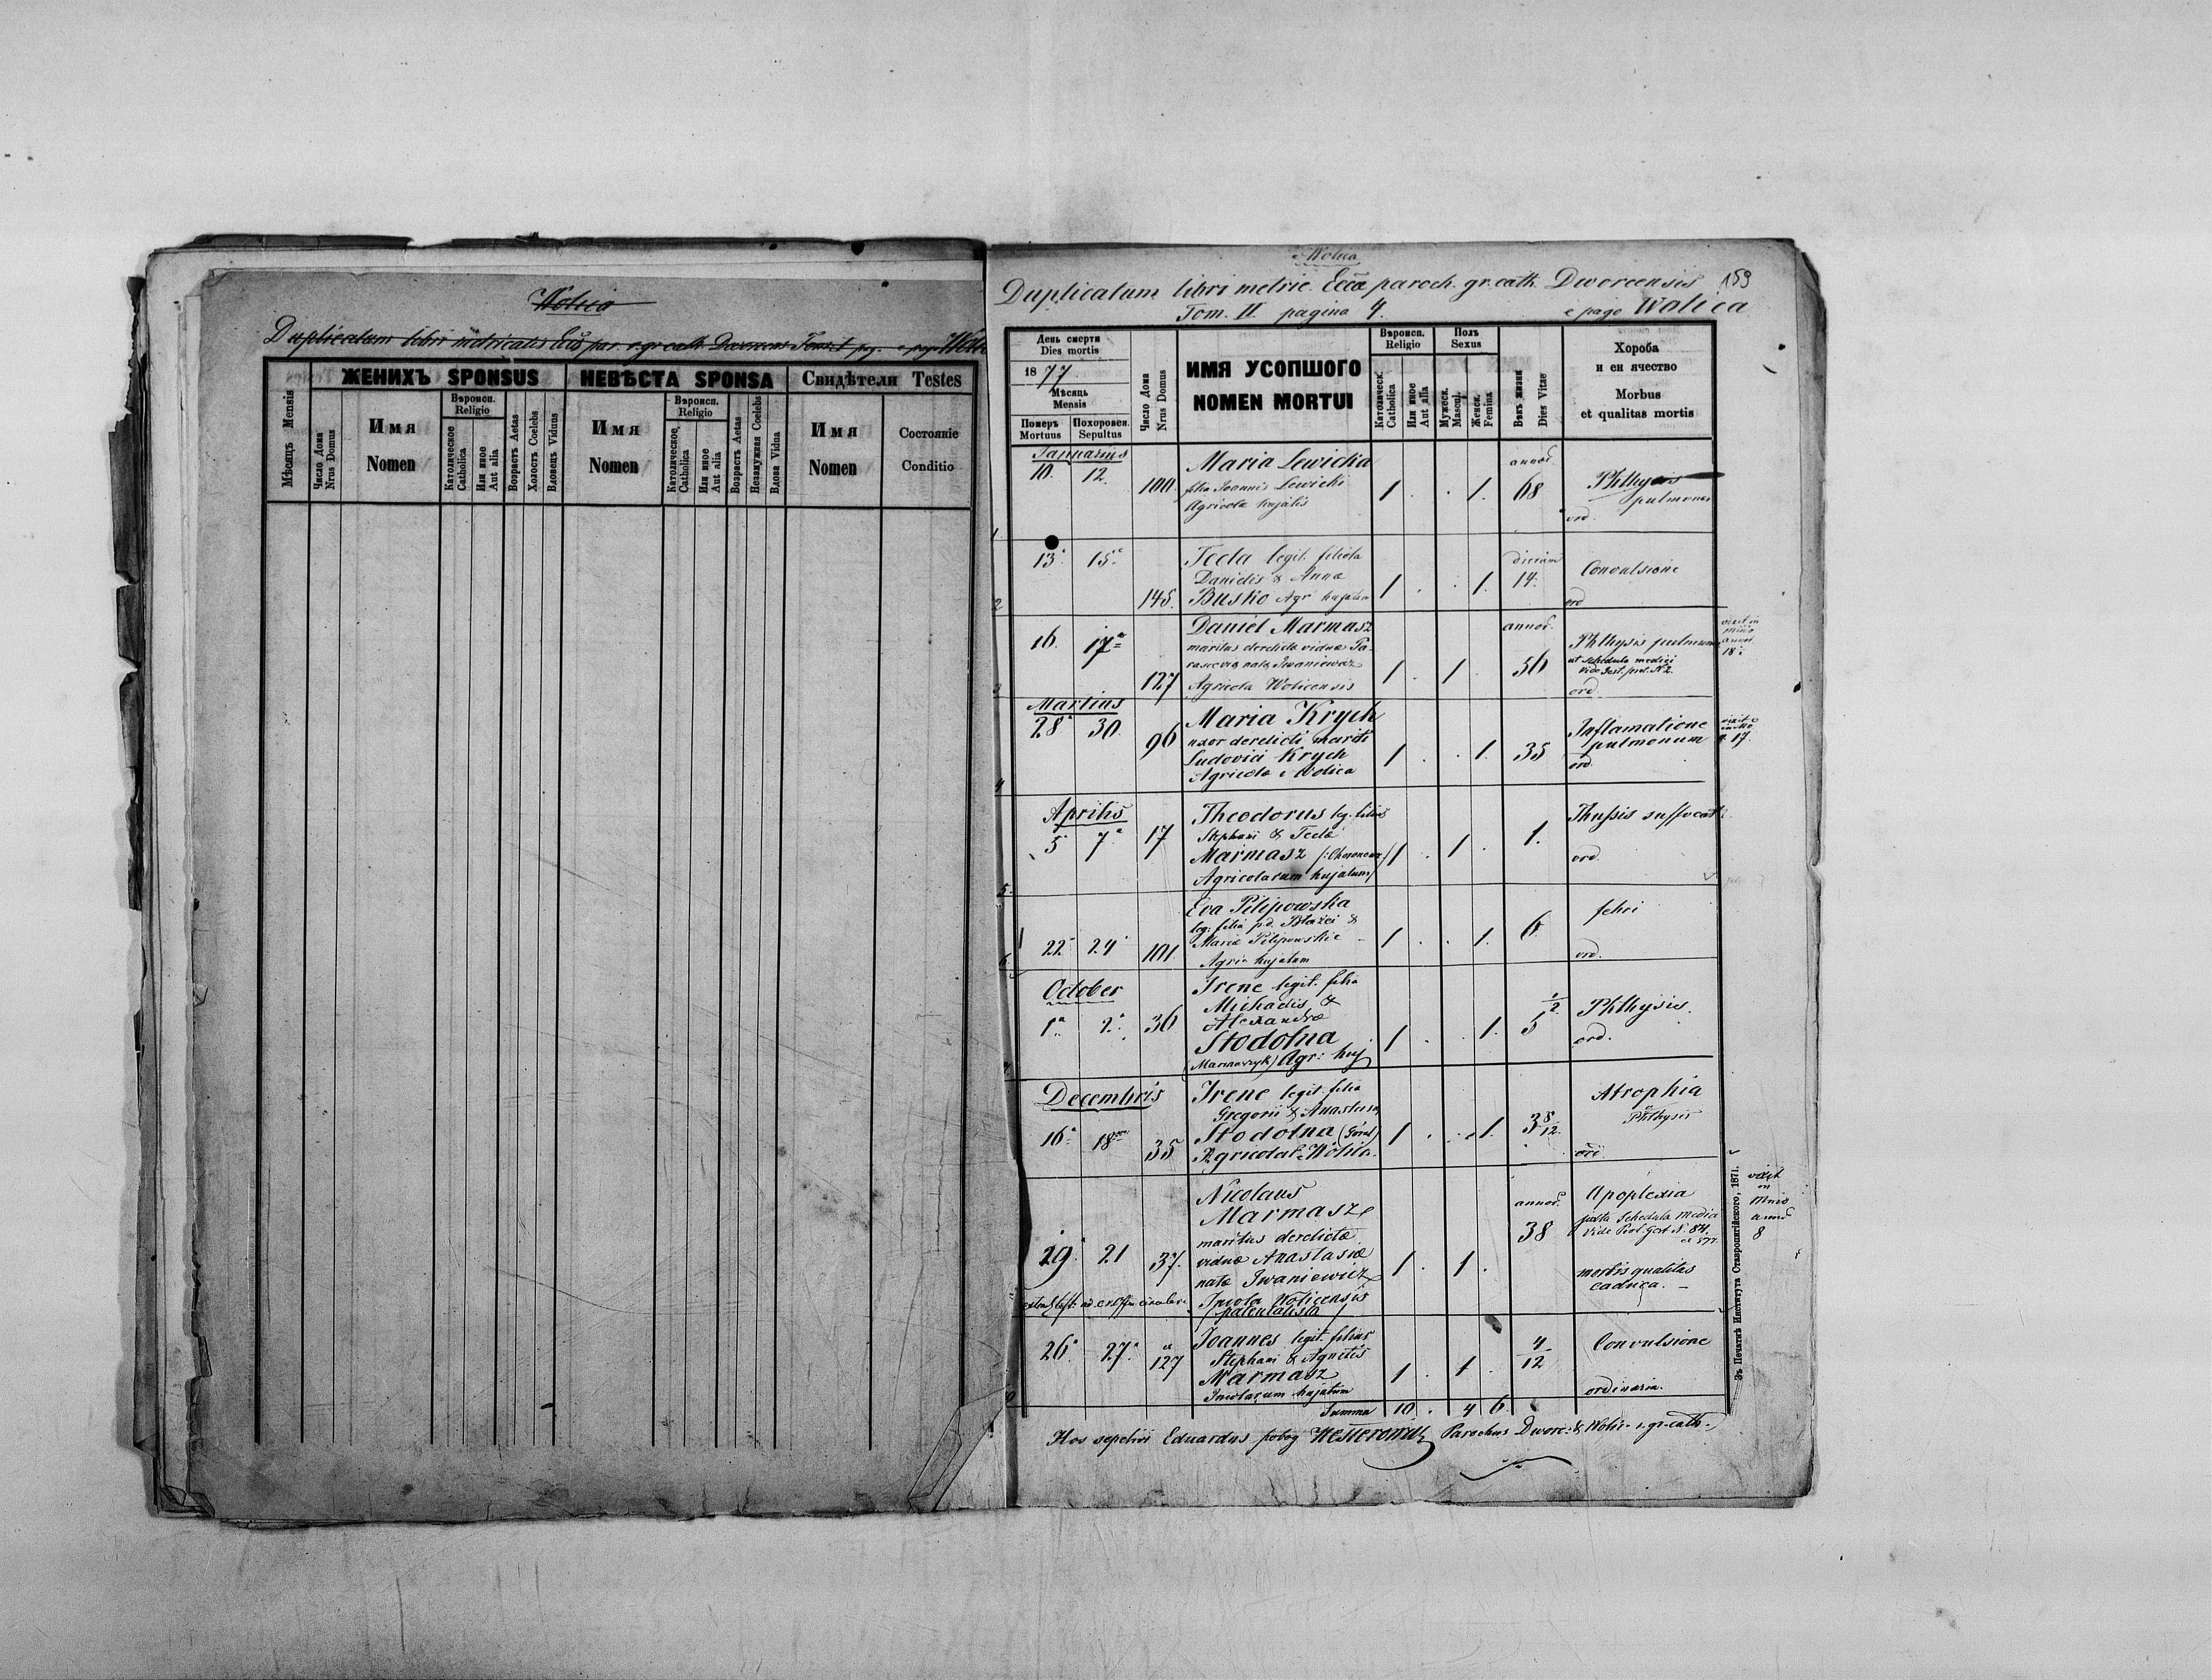 Wolica
Duplicatum libri metricalis Eccl. par. r. gr. cath. Tom. I pag. e pago
ЖЕНИХЪ SPONSUS
НЕВѢСТА SPONSA
Свидѣтели Testes
Мѣсяцъ Mensis
Число Дома
Nrus Domus
Имя
Nomen
Вѣроисп.
Religio
Католическое
Catholica
Или иное
Aut alia
Возрастъ Aetas
Холостъ Coelebs
Вдовецъ Viduus
Имя
Nomen
Вѣроисп.
Religio
Католическое
Catholica
Или иное
Aut alia
Возрастъ Aetas
Незамужняя Coelebs
Вдова Vidua
Имя
Nomen
Состояніе
Conditio
Wolica
Duplicatum libri metric. Eccae paroch. gr. cath. Dworcensis 159
Tom. II. pagina 4. e pago Wolica
День смерти
Dies mortis
1877
Мѣсяць
Mensis
Померъ
Mortuus
Похоронен.
Sepultus
Число Дома
Nrus Domus
ИМЯ УСОПШОГО
NOMEN MORTUI
Вѣроисп.
Religio
Католическ.
Catholica
Или иное
Aut alia
Полъ
Sexus
Мужеск.
Mascul.
Женск.
Femina
Вѣкъ жизни
Dies Vitae
Хороба
и еи ячество
Morbus
et qualitas mortis
Januarius
10. 12. 100
Maria Lewicka
filia Joannis Lewicki
Agricolae hujatis
1 . . 1.
annor.
68
Phthysis
pulmonum
ord.
1
13 15
145.
Tecla legit. filiola
Danielis & Annae
Busko Agr. hujatum
1 . . 1.
dierum
14.
Convulsione
ord
2
16. 17
127
Daniel Marmasz
maritus derelictae viduae Pa-
rascevia natae Iwaniewicz
Agricola Wolicensis
1 . 1 .
annor.
56
Phthysis pulmonum
ut schedula medici
vide Gest. prot. N. 2.
ord.
vixit in
annor.
18
3
Martius
28 30. 96
Maria Krych
uxor derelicti mariti
Ludovici Krych
Agricolae e Wolica
1 . . 1.
35
Inflamatione
pulmonum
ord.
17.
4
Aprilis
5 7 17
Theodorus leg. filius
Stephani & Teclae
Marmasz
Agricolarum hujatum
1 . 1 .
1.
Thussis suffocat.
ord.
5
22 24 101
Eva Pilipowska
leg. filia p.d. Blazei &
Mariae Pilipowskie
Agric. hujatum
1 . . 1.
6.
febri
ord.
6
October
1 2 36
Irene legit. filia
Michaelis &
Alexandrae
Stodolna
Agr: huj
1 . . 1.
5 1/2
Phthysis.
ord.
Decembris
16 18 35
Irene legit. filia
Gregorii & Anastasiae
Stodolna (Góral)
Agricolae Wolica.
1 . . 1.
3 8/12.
Atrophia
Phthysis
ord.
19 21 37.
Nicolaus
Marmasz
maritus derelictae
viduae Anastasiae
natae Iwaniewicz
Incola Wolicensis
1 . 1 .
annor.
38
Apoplexia
juxta Schedula Medici
Vide Prot. Gest. N. 84.
ex 877.
mortis qualitas
caduca. –
vixit
in
annos
8
26. 27. 127
Joannes legit. filius
Stephani & Agnetis
Marmasz
Incolarum hujatum
1 . 1 .
4
12
Convulsione
ordinaria.
10
Summa 10 . 4 6.
Hos sepelivi Eduardus Parochus Dworc: & Wolic. r. gr. cath.
Зъ Печатнѣ Института Ставропигійского, 1871.